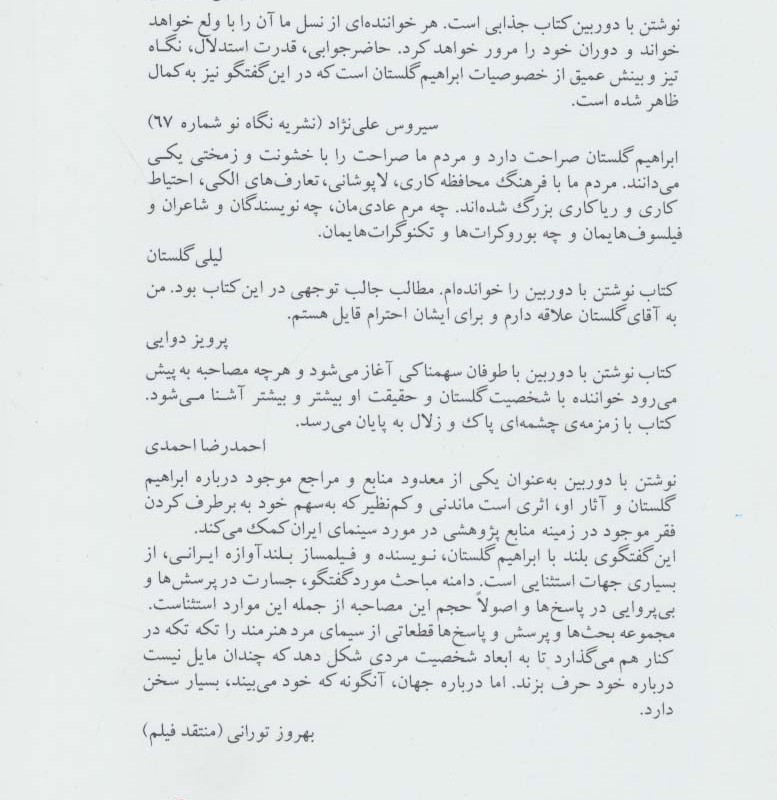 نوشتن با دوربین کتاب جذابی است. هر خواننده‌ای از نسل ما آن را با ولع خواهد
خواند و دوران خود را مرور خواهد کرد. حاضرجوابی، قدرت استدلال، نگاه
تیز و بینش عمیق از خصوصیات ابراهیم گلستان است که در این گفتگو نیز به کمال
ظاهر شده است.
سیروس علی‌نژاد (نشریه نگاه نو شماره ۶۷)
ابراهیم گلستان صراحت دارد و مردم ما صراحت را با خشونت و زمختی یکی
می‌دانند. مردم ما با فرهنگ محافظه‌کاری، لاپوشانی، تعارف‌های الکی، احتیاط
کاری و ریاکاری بزرگ شده‌اند. چه مرم عادی‌مان، چه نویسندگان و شاعران و
فیلسوف‌هایمان و چه بوروکرات‌ها و تکنوگرات‌هایمان.
لیلی گلستان
کتاب نوشتن با دوربین را خوانده‌ام. مطالب جالب توجهی در این کتاب بود. من
به آقای گلستان علاقه دارم و برای ایشان احترام قایل هستم.
پرویز دوایی
کتاب نوشتن با دوربین با طوفان سهمناکی آغاز می‌شود و هرچه مصاحبه به پیش
می‌رود خواننده با شخصیت گلستان و حقیقت او بیشتر و بیشتر آشنا می‌شود.
کتاب با زمزمه‌ی چشمه‌ای پاک و زلال به پایان می‌رسد.
احمدرضا احمدی
نوشتن با دوربین به‌عنوان یکی از معدود منابع و مراجع موجود درباره ابراهیم
گلستان و آثار او، اثری است ماندنی و کم‌نظیر که به‌سهم خود به برطرف کردن
فقر موجود در زمینه منابع پژوهشی در مورد سینمای ایران کمک می‌کند.
این گفتگوی بلند با ابراهیم گلستان، نویسنده و فیلمساز بلندآوازه ایرانی، از
بسیاری جهات استثنایی است. دامنه مباحث مورد گفتگو، جسارت در پرسش‌ها و
بی‌پروایی در پاسخ‌ها و اصولاً حجم این مصاحبه از جمله این موارد استثناست.
مجموعه بحث‌ها و پرسش و پاسخ‌ها قطعاتی از سیمای مرد هنرمند را تکه تکه در
کنار هم می‌گذارد تا به ابعاد شخصیت مردی شکل دهد که چندان مایل نیست
درباره خود حرف بزند. اما درباره جهان، آنگونه که خود می‌بیند، بسیار سخن
دارد.
بهروز تورانی (منتقد فیلم)